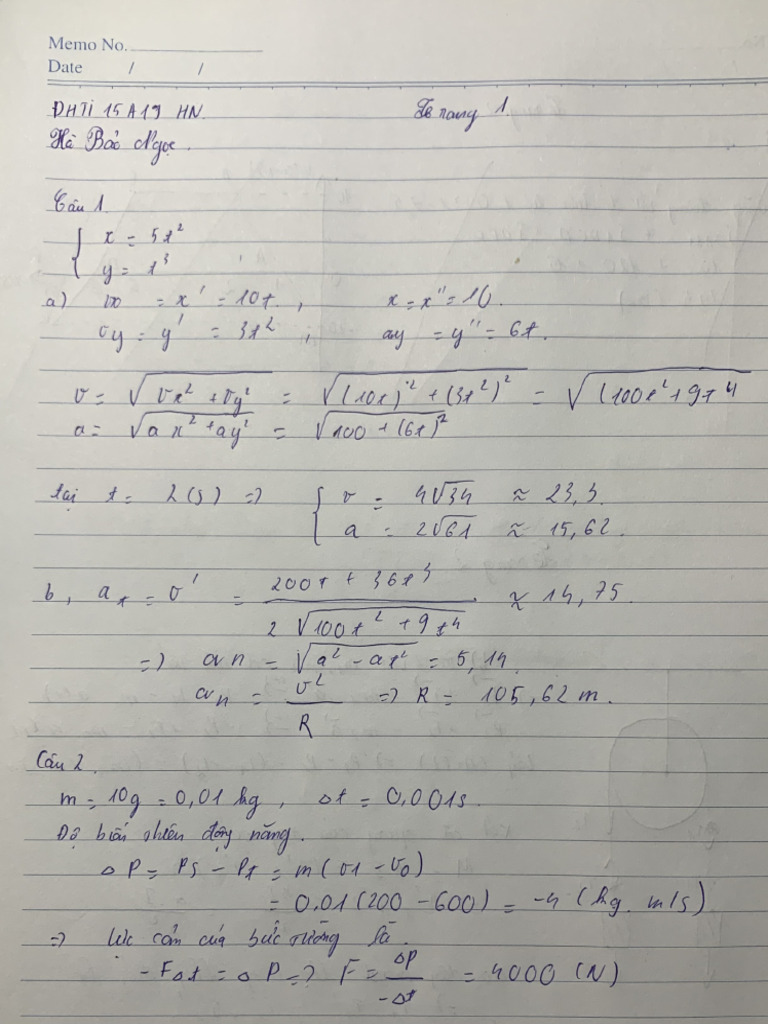 Memo No.
Date / /
ĐHTI 15 A19 HN. Tờ trang 1.
Hà Bảo Ngọc.
Câu 1.
{ x = 5t²
y = t³
a) vx = x' = 10t, x = x'' = 10.
vy = y' = 3t², ay = y'' = 6t.
v = √(vx² + vy²) = √((10t)² + (3t²)²) = √(100t² + 9t⁴
a = √(ax² + ay²) = √(100 + (6t)²)
tại t = 2(s) => { v = 4√34 ≈ 23,3.
a = 2√61 ≈ 15,62.
b, at = v' = (200t + 36t³) / (2√(100t² + 9t⁴)) ≈ 14,75.
=> an = √(a² - at²) = 5,14.
an = v²/R => R = 105,62 m.
Câu 2.
m = 10g = 0,01 kg, Δt = 0,001s.
Độ biến thiên động năng.
ΔP = Ps - Pt = m(v1 - v0)
= 0,01(200 - 600) = -4 (kg. m/s)
=> Lực cản của bức tường là.
-FΔt = ΔP => F = ΔP/-Δt = 4000 (N)